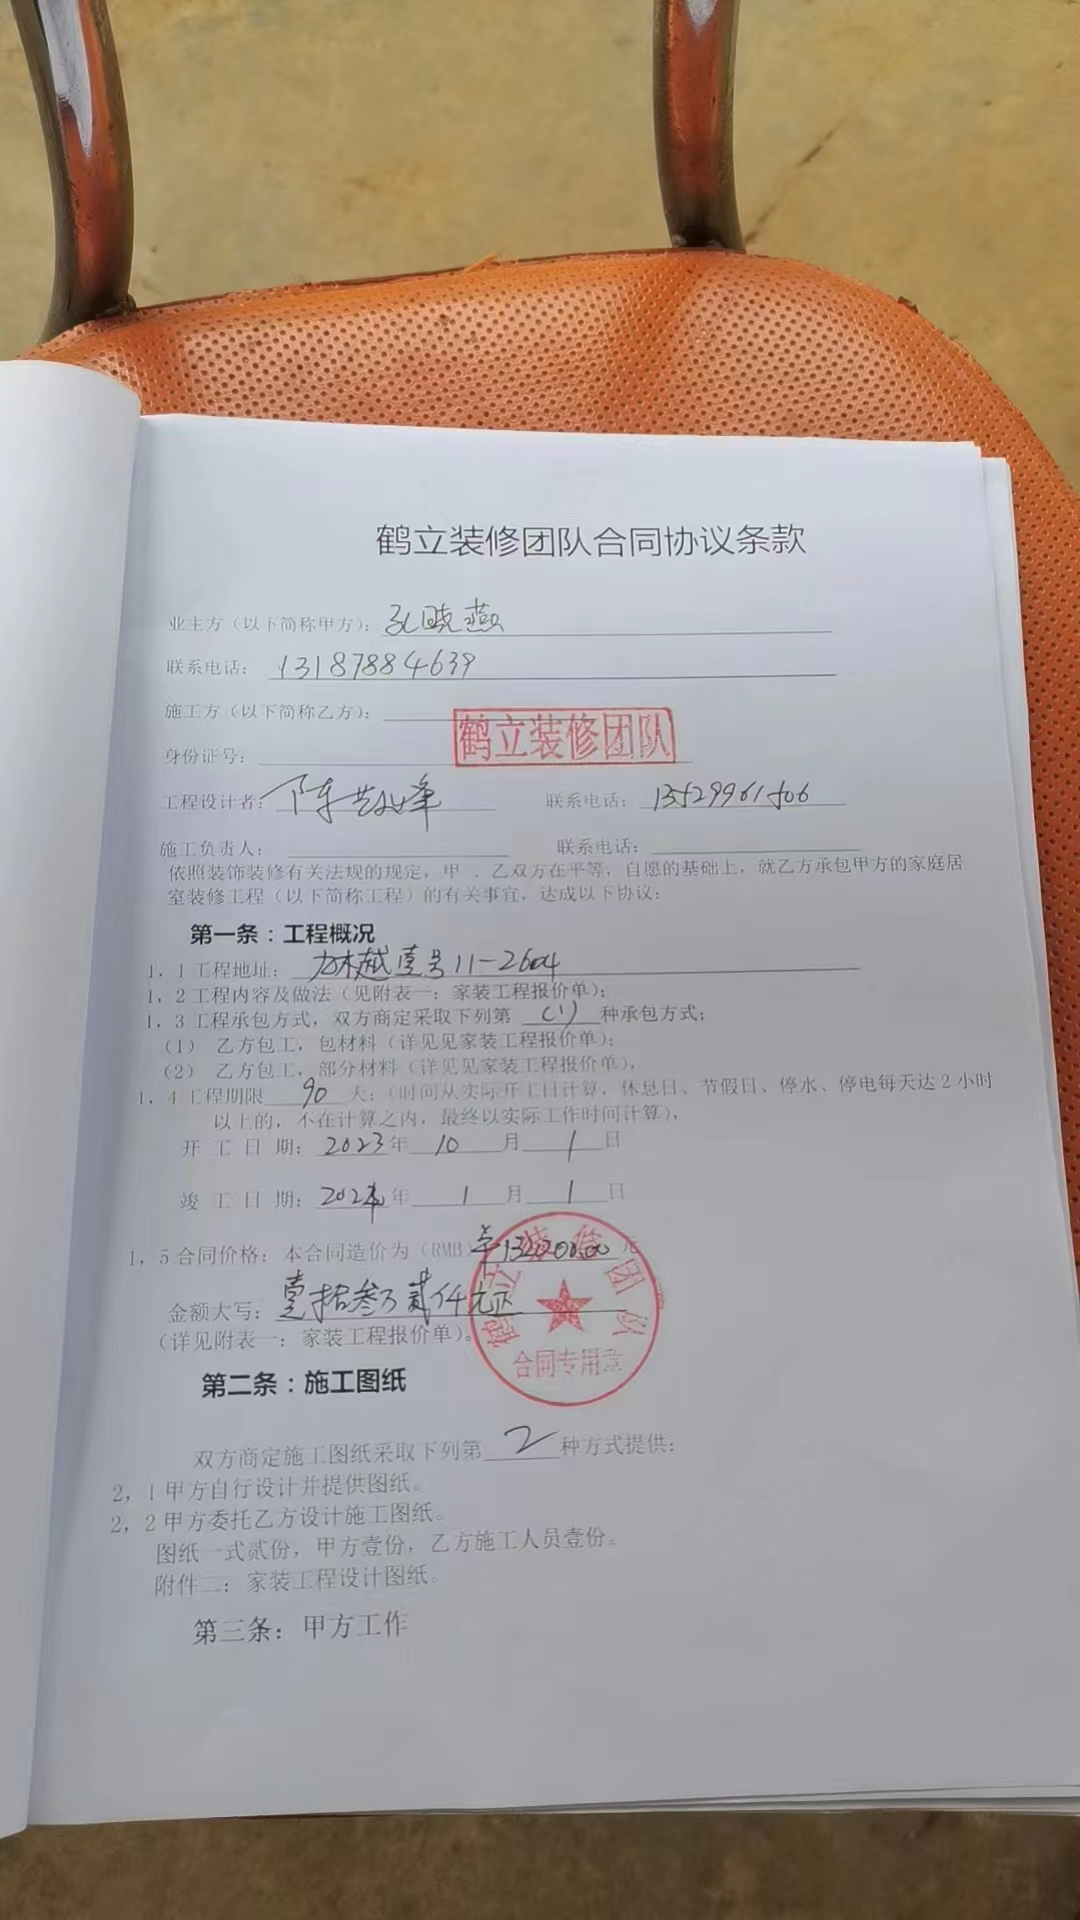 鹤立装修团队合同协议条款
业主方（以下简称甲方）：孔晓燕
联系电话：13187884639
施工方（以下简称乙方）：
鹤立装修团队
身份证号：
工程设计者：陈 峰 联系电话：13529961506
施工负责人： 联系电话：
依照装饰装修有关法规的规定，甲 、乙双方在平等，自愿的基础上，就乙方承包甲方的家庭居
室装修工程（以下简称工程）的有关事宜，达成以下协议：
第一条：工程概况
1，1工程地址： 越壹号11-2604
1，2工程内容及做法（见附表一：家装工程报价单）；
1，3工程承包方式，双方商定采取下列第（1）种承包方式；
（1） 乙方包工，包材料（详见见家装工程报价单）；
（2） 乙方包工，部分材料（详见见家装工程报价单），
1，4工程期限 90 天；（时间从实际开工日计算，休息日、节假日、停水、停电每天达2小时
以上的，不在计算之内，最终以实际工作时间计算），
开 工 日 期：2023年 10 月 1 日
竣 工 日 期：2024年 1 月 1 日
1，5合同价格：本合同造价为（RMB）132000.00元
金额大写：壹拾叁万贰仟元正
（详见附表一：家装工程报价单）。
鹤立装修团队
合同专用章
第二条：施工图纸
双方商定施工图纸采取下列第 2 种方式提供：
2，1甲方自行设计并提供图纸。
2，2甲方委托乙方设计施工图纸。
图纸一式贰份，甲方壹份，乙方施工人员壹份。
附件二：家装工程设计图纸。
第三条：甲方工作